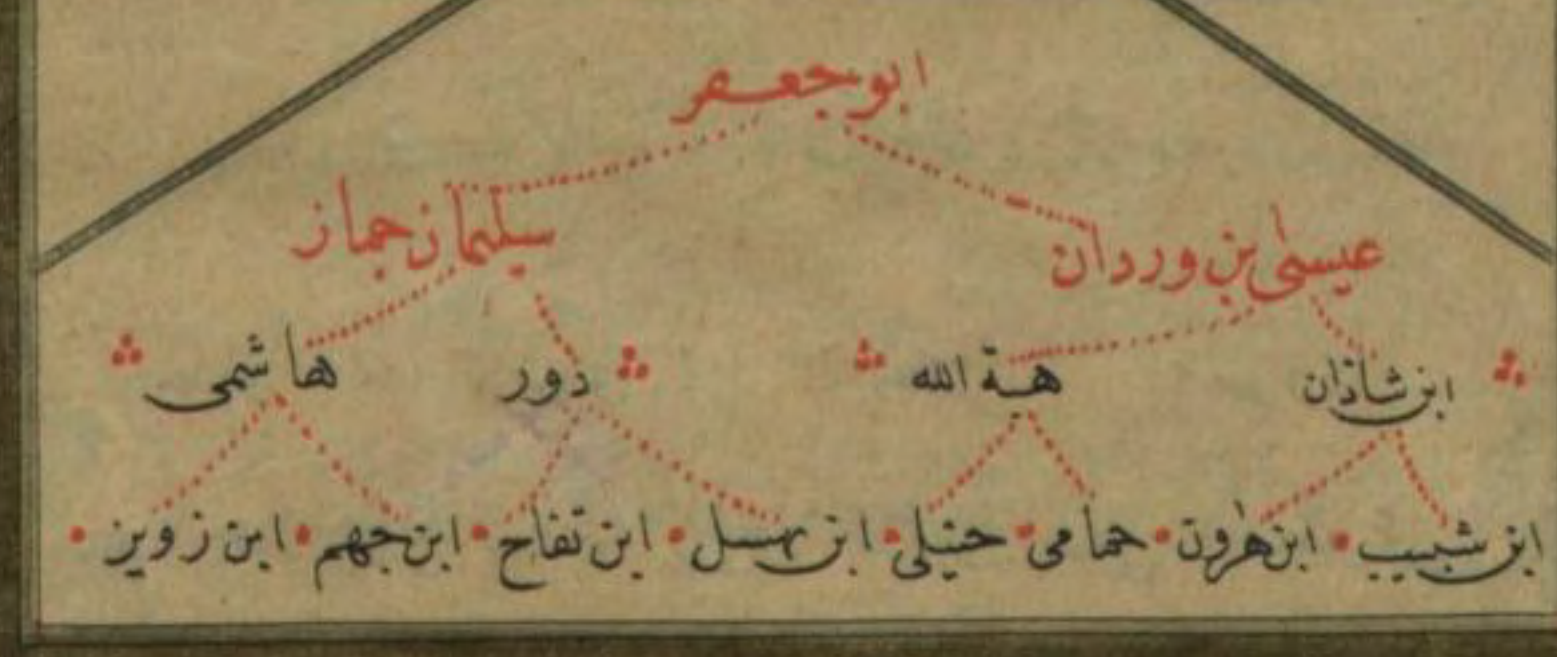 ابو جعفر
عيسى بن وردان سليمان جماز
ابن شاذان هبة الله دور هاشمى
ابن شبيب ابن هرون حمامى حنبلى ابن نهسل ابن تفاح ابن جهم ابن زويز